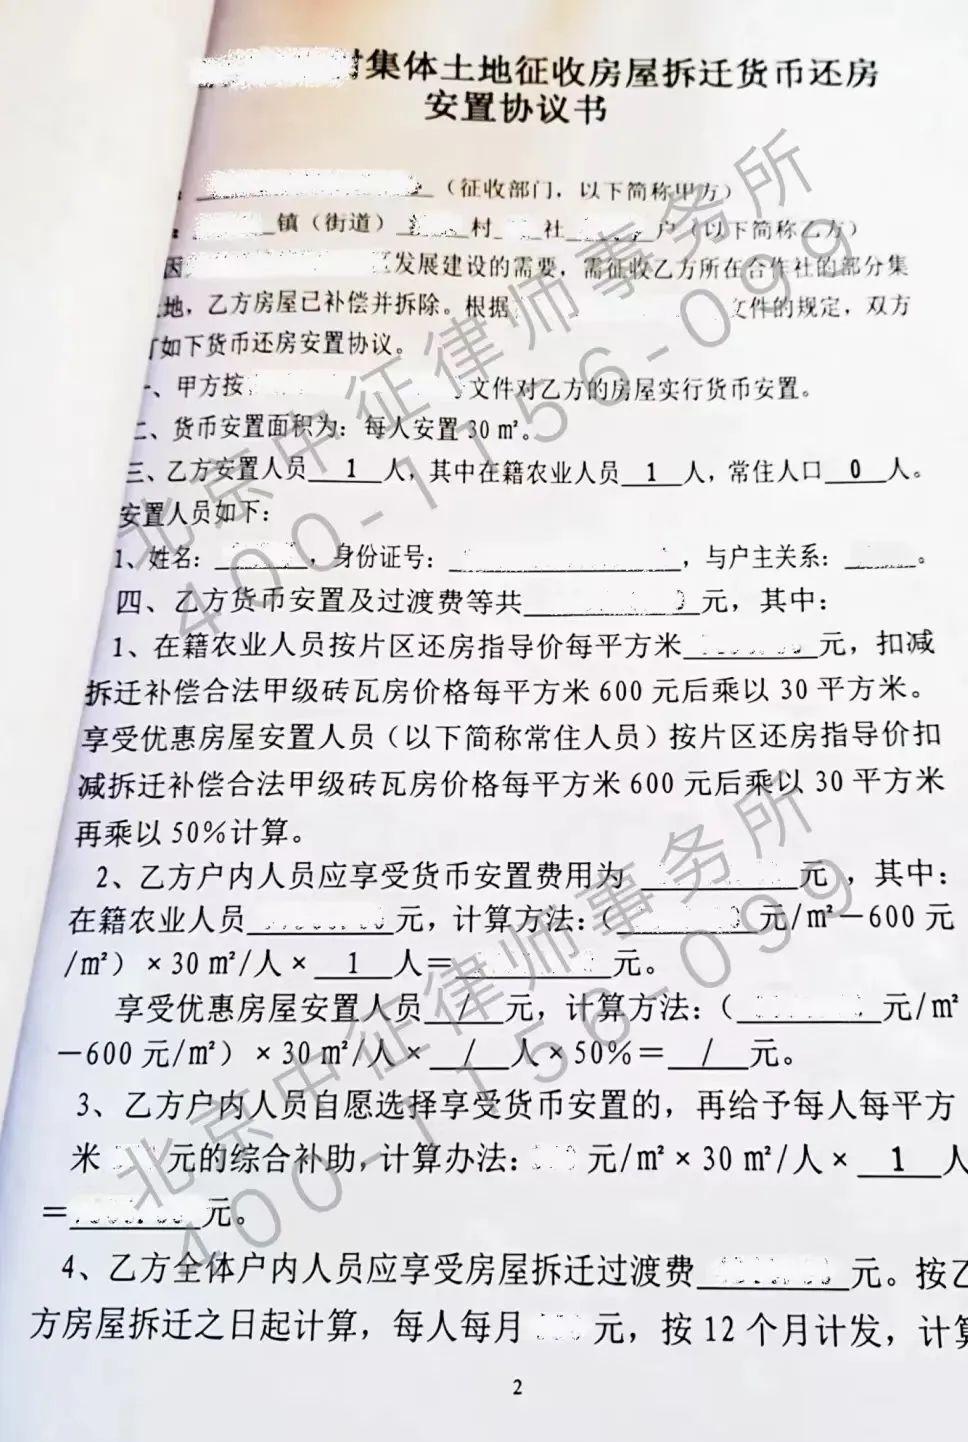 村集体土地征收房屋拆迁货币还房
安置协议书
（征收部门，以下简称甲方）
镇（街道）村社户（以下简称乙方）
因区发展建设的需要，需征收乙方所在合作社的部分集
地，乙方房屋已补偿并拆除。根据文件的规定，双方
如下货币还房安置协议。
一、甲方按文件对乙方的房屋实行货币安置。
二、货币安置面积为：每人安置30㎡。
三、乙方安置人员 1 人，其中在籍农业人员 1 人，常住人口 0 人。
安置人员如下：
1、姓名：，身份证号：，与户主关系：。
四、乙方货币安置及过渡费等共元，其中：
1、在籍农业人员按片区还房指导价每平方米元，扣减
拆迁补偿合法甲级砖瓦房价格每平方米600元后乘以30平方米。
享受优惠房屋安置人员（以下简称常住人员）按片区还房指导价扣
减拆迁补偿合法甲级砖瓦房价格每平方米600元后乘以30平方米
再乘以50%计算。
2、乙方户内人员应享受货币安置费用为元，其中：
在籍农业人员元，计算方法：（元/㎡－600元
/㎡）×30㎡/人× 1 人＝元。
享受优惠房屋安置人员 / 元，计算方法：（元/㎡
－600元/㎡）×30㎡/人× / 人×50%＝ / 元。
3、乙方户内人员自愿选择享受货币安置的，再给予每人每平方
米元的综合补助，计算办法：元/㎡×30㎡/人× 1 人
＝元。
4、乙方全体户内人员应享受房屋拆迁过渡费元。按乙
方房屋拆迁之日起计算，每人每月元，按12个月计发，计算
2
北京中征律师事务所
400-1156-099
北京中征律师事务所
400-1156-099